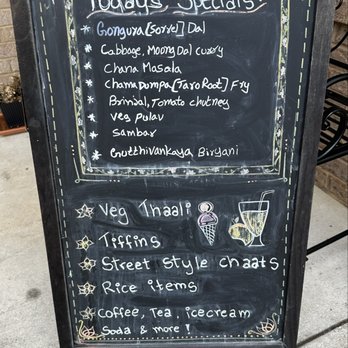 Todays Specials:
* Gongura [Sorrel] Dal
* Cabbage, Moong Dal curry
* Chana Masala
* Chamadumpa [Taro Root] Fry
* Brinjal, Tomato chutney
* veg pulav
* sambar
* Gutthivankaya Biryani
Veg Thaali
Tiffins
Street style chaats
Rice items
Coffee, Tea, icecream
Soda & more!